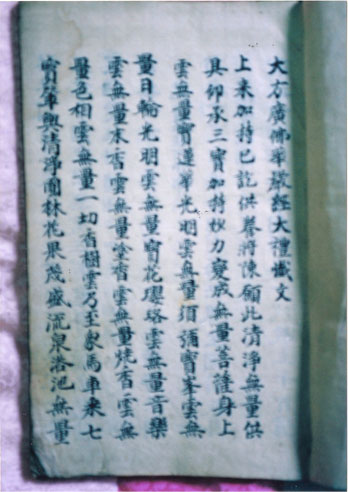 大方廣佛華嚴經大禮懺文
上来加持已訖供養將陳願此清淨無量供
具卬承三寶加持叔力變成無量菩薩身上
雲無量寶蓮華光明雲無量須彌寶峯雲無
量日輪光明雲無量寶花瓔珞雲無量音樂
雲無量末香雲無量塗香雲無量燒香雲無
量色相雲無量一切香樹雲乃至象馬車乘七
寶輦輿清淨園林花果茂盛流泉浴池無量